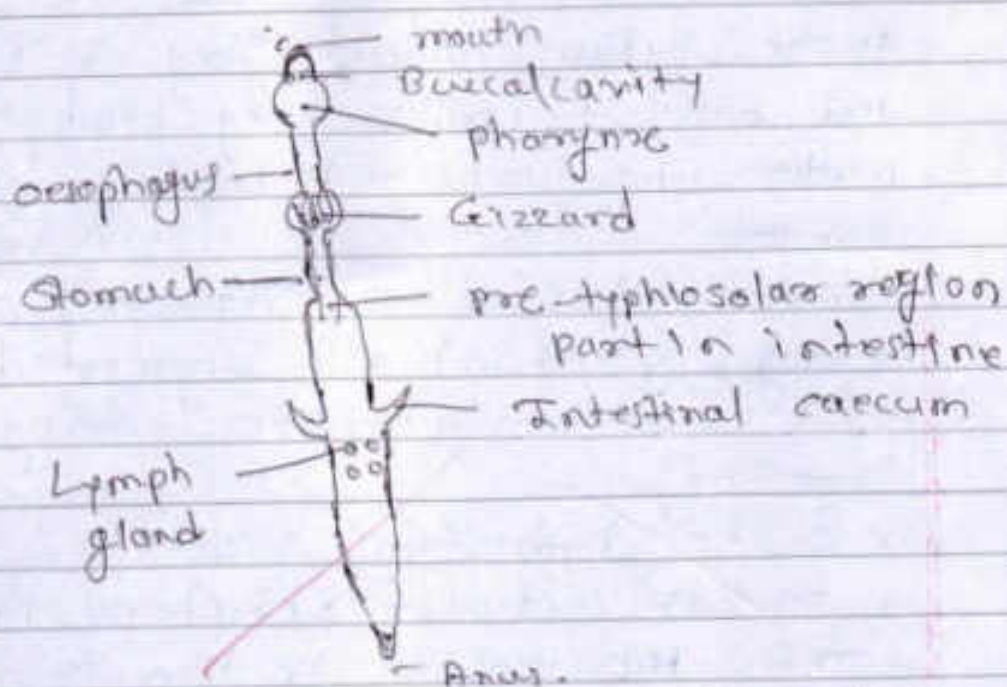 mouth
Buccalcavity
pharynx
oesophagus
Gizzard
Stomach
pre-typhlosolar region
part in intestine
Intestinal caecum
Lymph
gland
Anus.